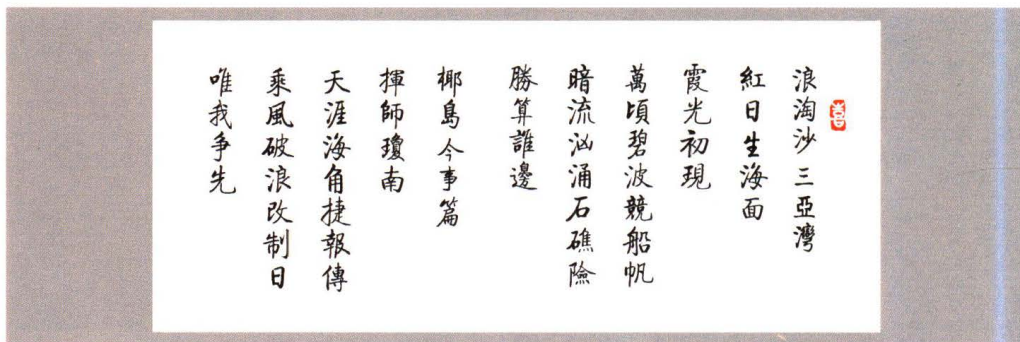 浪淘沙三亞灣
紅日生海面
霞光初現
萬頃碧波競船帆
暗流汹涌石礁險
勝算誰邊
椰島今事篇
揮師瓊南
天涯海角捷報傳
乘風破浪改制日
唯我爭先